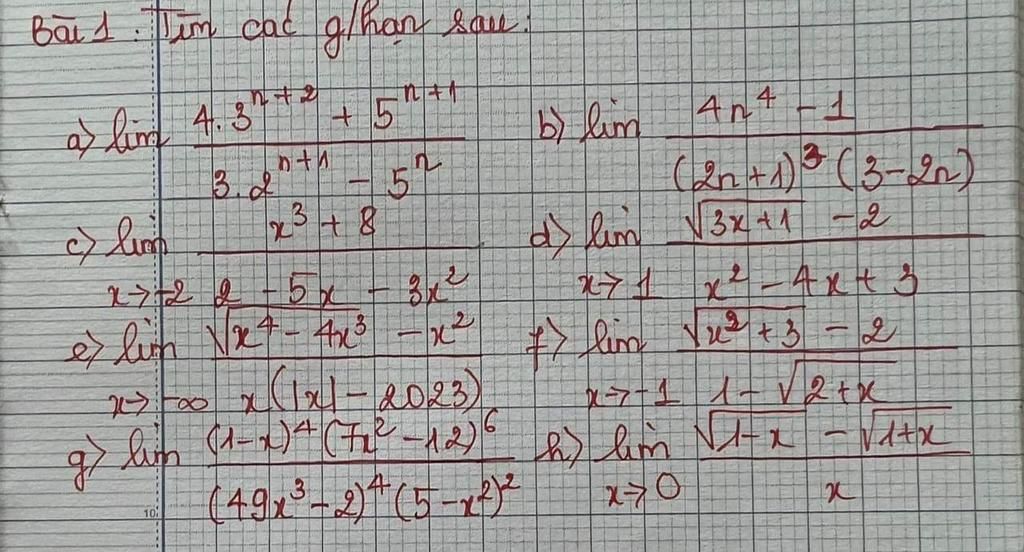 Bài 1: Tìm các g/hạn sau:
a) lim (4.3^(n+2) + 5^(n+1)) / (3.2^(n+1) - 5^n) b) lim (4n^4 - 1) / ((2n+1)^3 (3-2n))
c) lim x→-2 (x^3 + 8) / (2 - 5x - 3x^2) d) lim x→1 (√(3x+1) - 2) / (x^2 - 4x + 3)
e) lim x→-∞ (√(x^4 - 4x^3) - x^2) / (x(|x| - 2023)) f) lim x→-1 (√(x^2 + 3) - 2) / (1 - √(2+x))
g) lim ((1-x)^4 (7x^2 - 12)^6) / ((49x^3 - 2)^4 (5 - x^2)^2) h) lim x→0 (√(1-x) - √(1+x)) / x
10